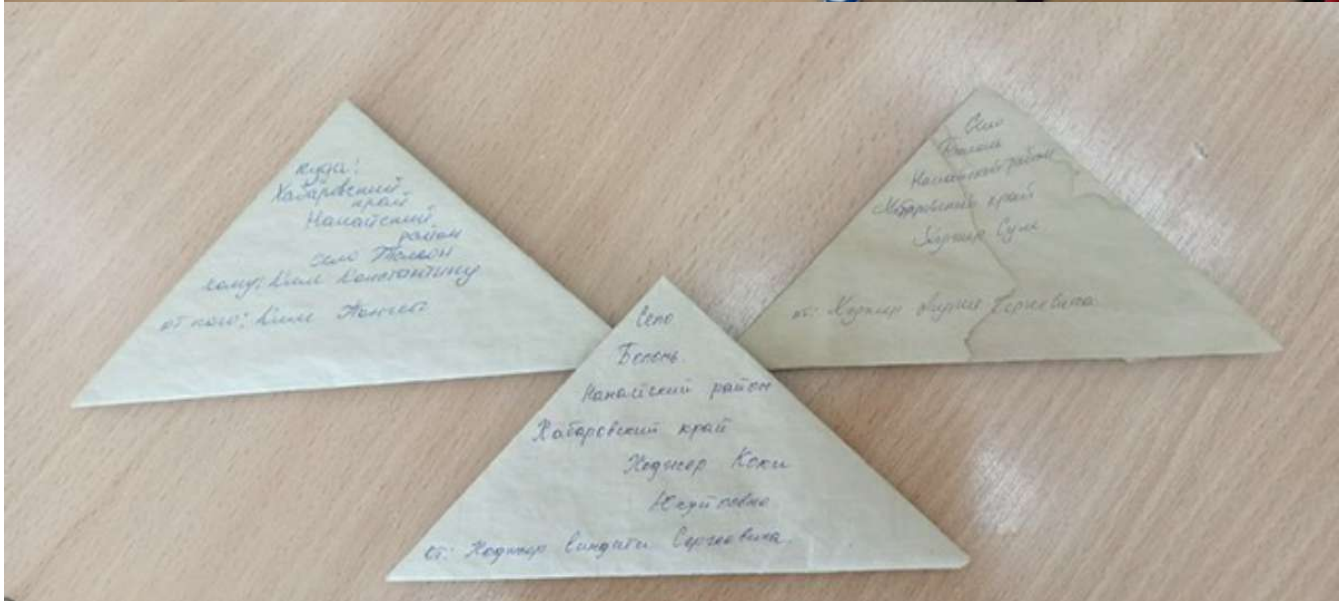 куда:
Хабаровский
край
Нанайский
район
село
кому: Киле Константину
от кого: Киле
Село
Болонь
Нанайский район
Хабаровский край
Ходжер Коки
от: Ходжер Сергеевича
Село
Нанайский район
Хабаровский край
Ходжер
от: Ходжер Сергеевича